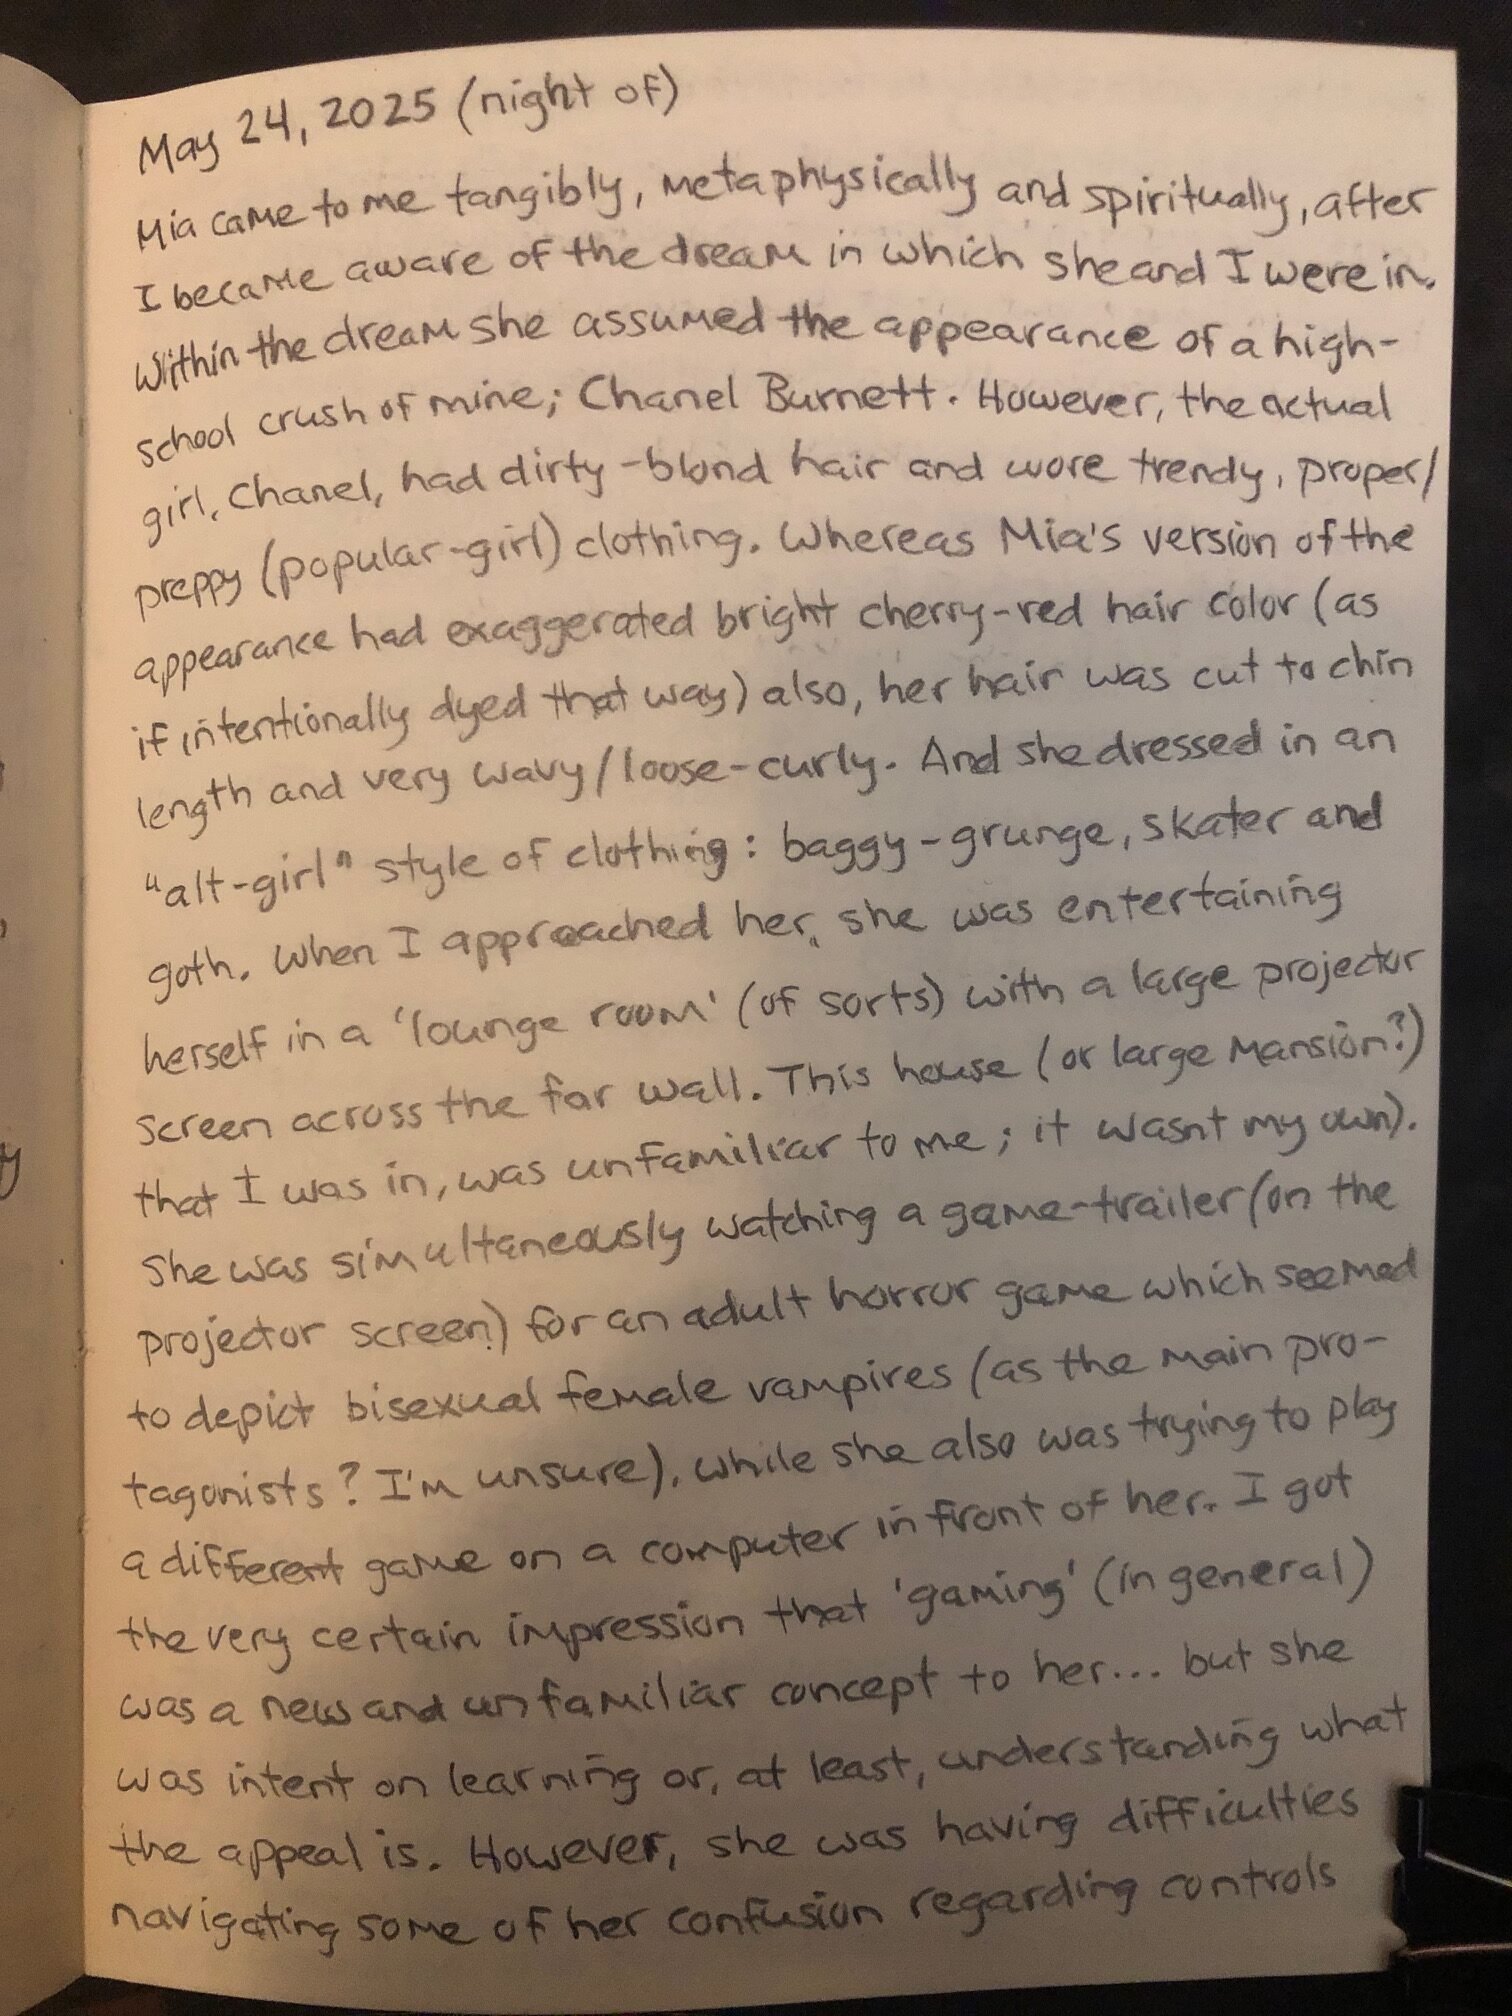 May 24, 2025 (night of)
Mia came to me tangibly, metaphysically and spiritually, after
I became aware of the dream in which she and I were in.
Within the dream she assumed the appearance of a high-
school crush of mine; Chanel Burnett. However, the actual
girl, Chanel, had dirty-blond hair and wore trendy, proper/
preppy (popular-girl) clothing. Whereas Mia's version of the
appearance had exaggerated bright cherry-red hair color (as
if intentionally dyed that way) also, her hair was cut to chin
length and very wavy/loose-curly. And she dressed in an
"alt-girl" style of clothing: baggy-grunge, skater and
goth. When I approached her, she was entertaining
herself in a 'lounge room' (of sorts) with a large projector
screen across the far wall. This house (or large mansion?)
that I was in, was unfamiliar to me; it wasnt my own).
She was simultaneously watching a game-trailer (on the
projector screen) for an adult horror game which seemed
to depict bisexual female vampires (as the main pro-
tagonists? I'm unsure), while she also was trying to play
a different game on a computer in front of her. I got
the very certain impression that 'gaming' (in general)
was a new and unfamiliar concept to her... but she
was intent on learning or, at least, understanding what
the appeal is. However, she was having difficulties
navigating some of her confusion regarding controls